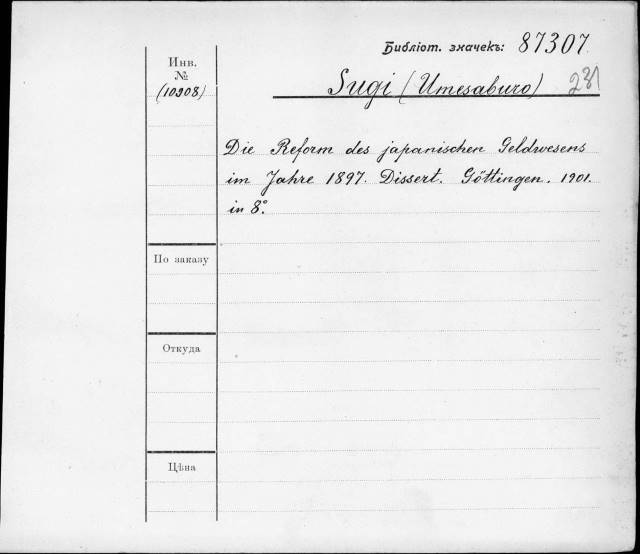 Библіот. значекъ: 87307.
Инв.
№
(10908)
Sugi (Umesaburo) 231
Die Reform des japanischen Geldwesens
im Jahre 1897. Dissert. Göttingen. 1901.
in 8º.
По заказу
Откуда
Цѣна